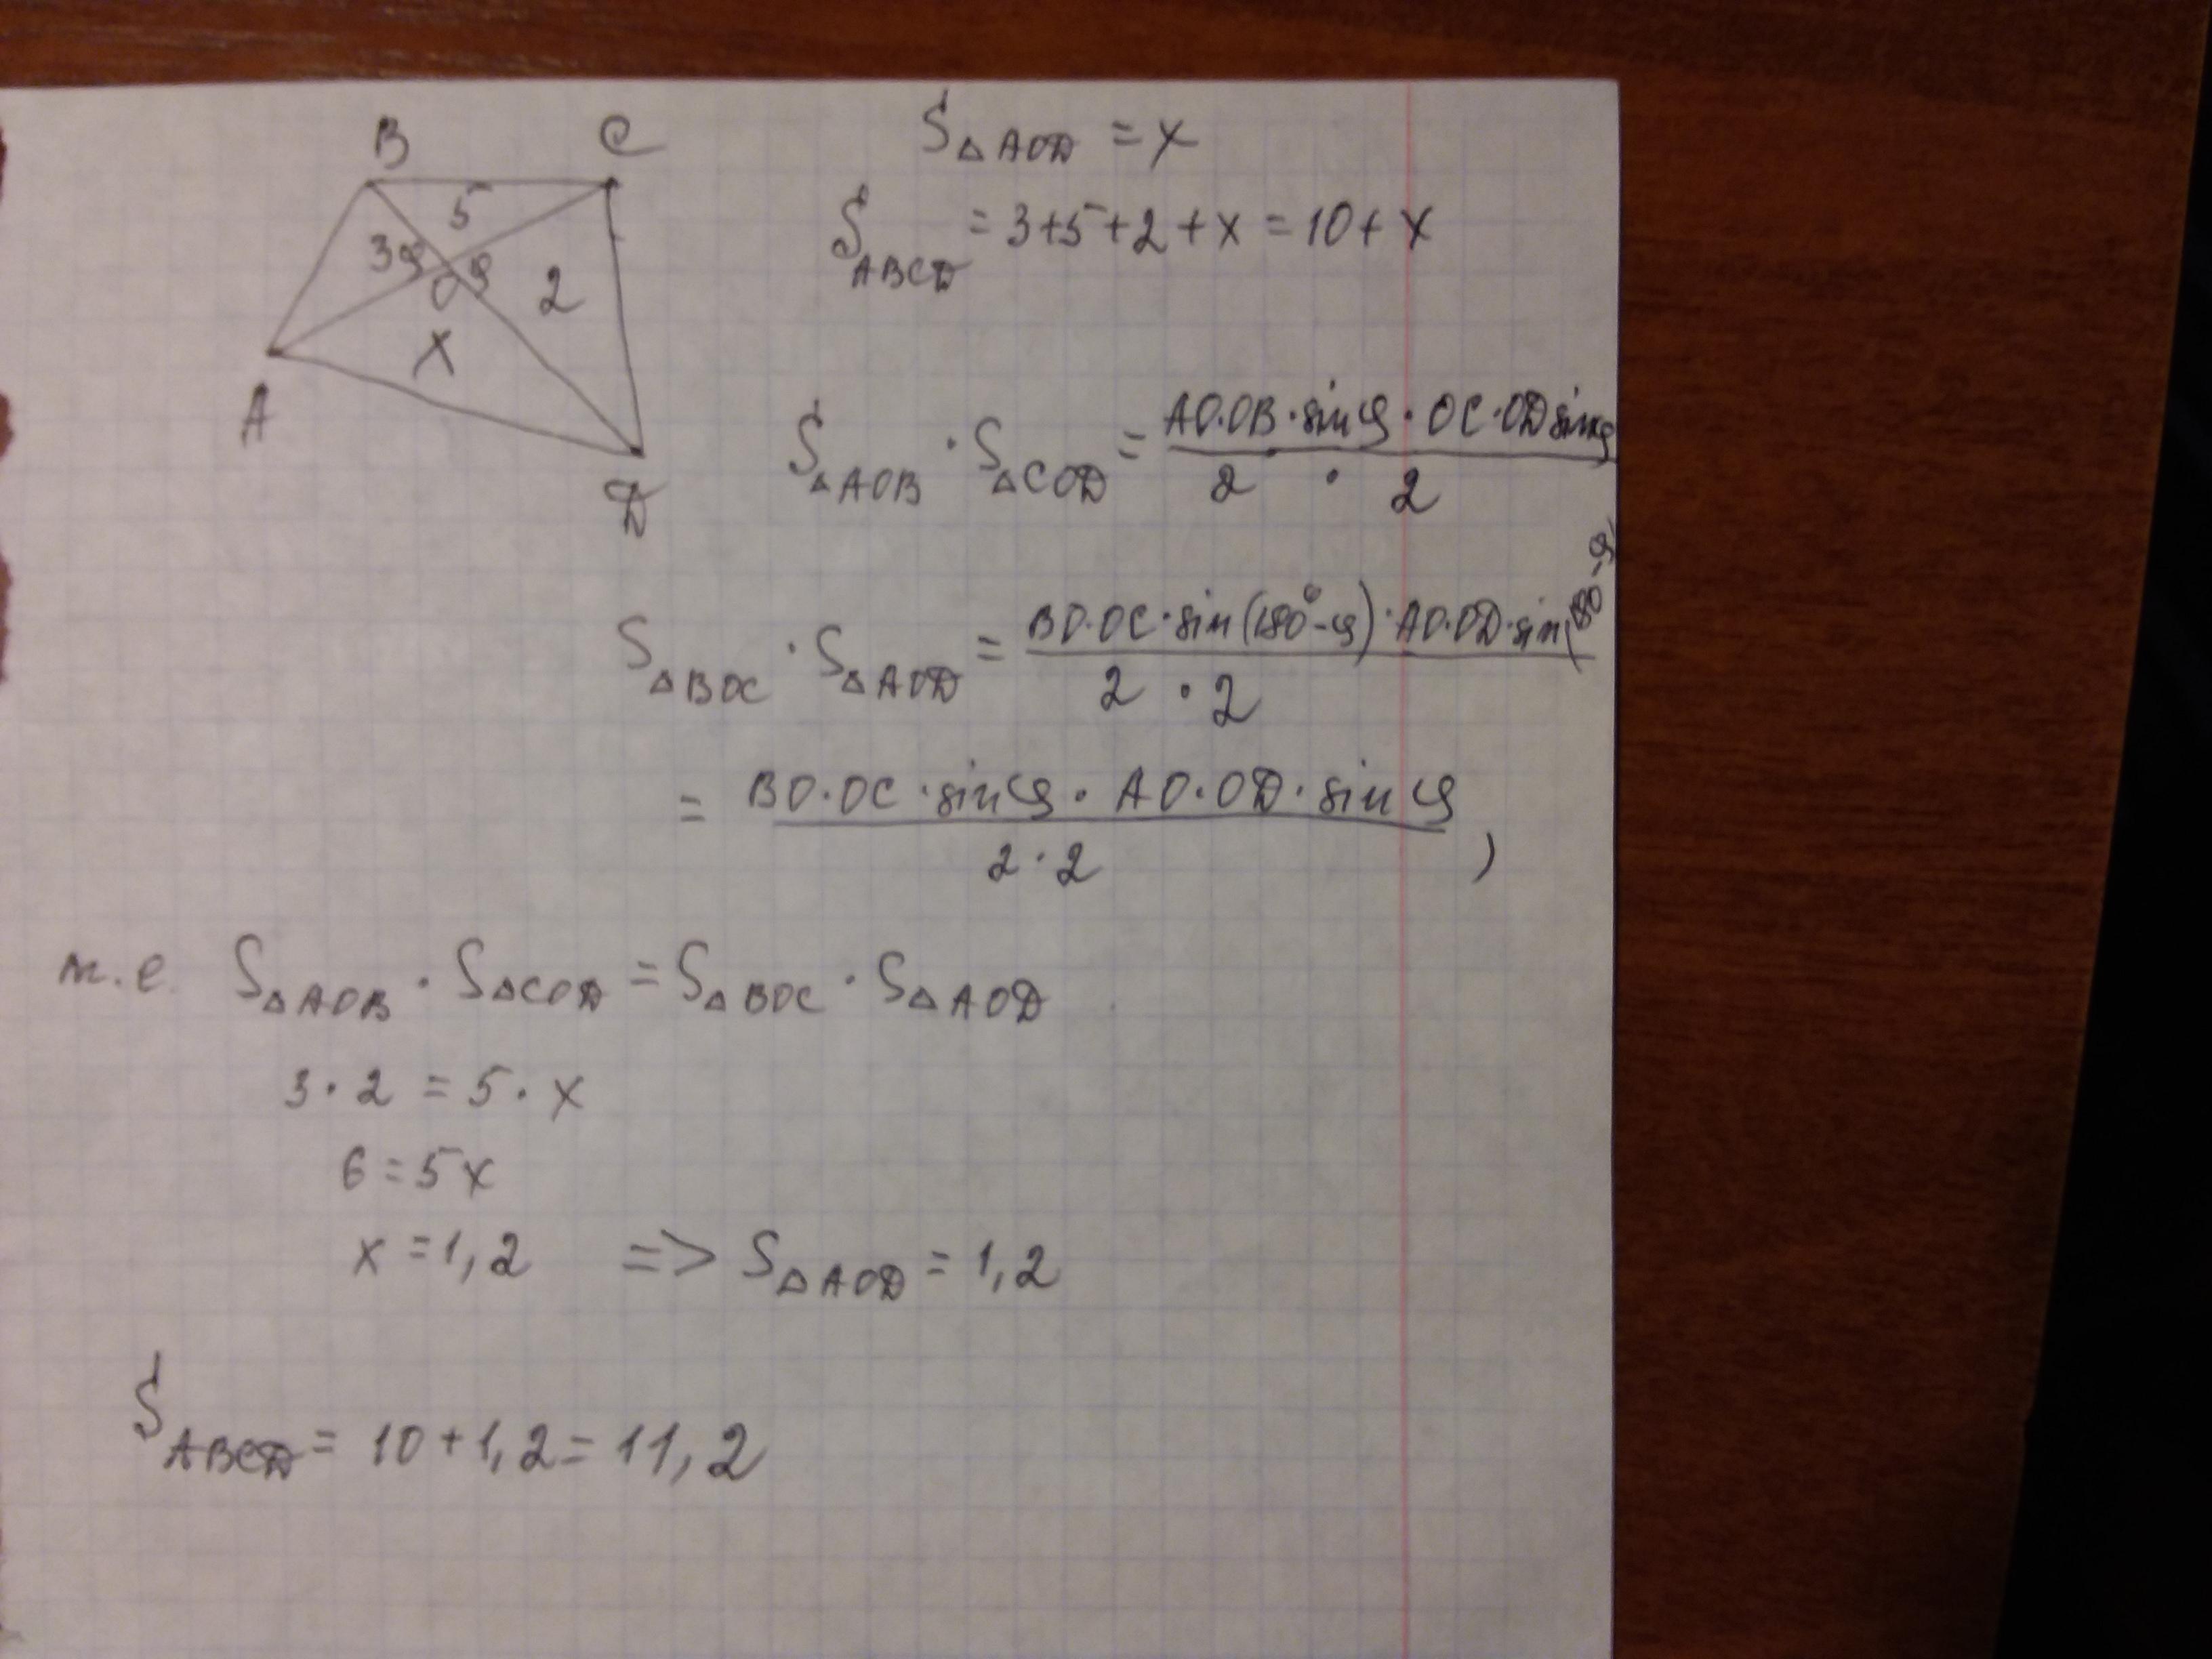 B C
5
3 φ φ 2
O
x
A
D
S△AOD = x
S ABCD = 3+5+2+x = 10+x
S△AOB · S△COD = AO·OB·sinφ · OC·OD sinφ / 2 · 2
S△BOC · S△AOD = BO·OC·sin(180°-φ)·AO·OD·sin(180-φ) / 2 · 2
= BO·OC·sinφ · AO·OD·sinφ / 2·2 ,
т.е. S△AOB · S△COD = S△BOC · S△AOD
3·2 = 5·x
6=5x
x=1,2 => S△AOD = 1,2
S ABCD = 10+1,2=11,2